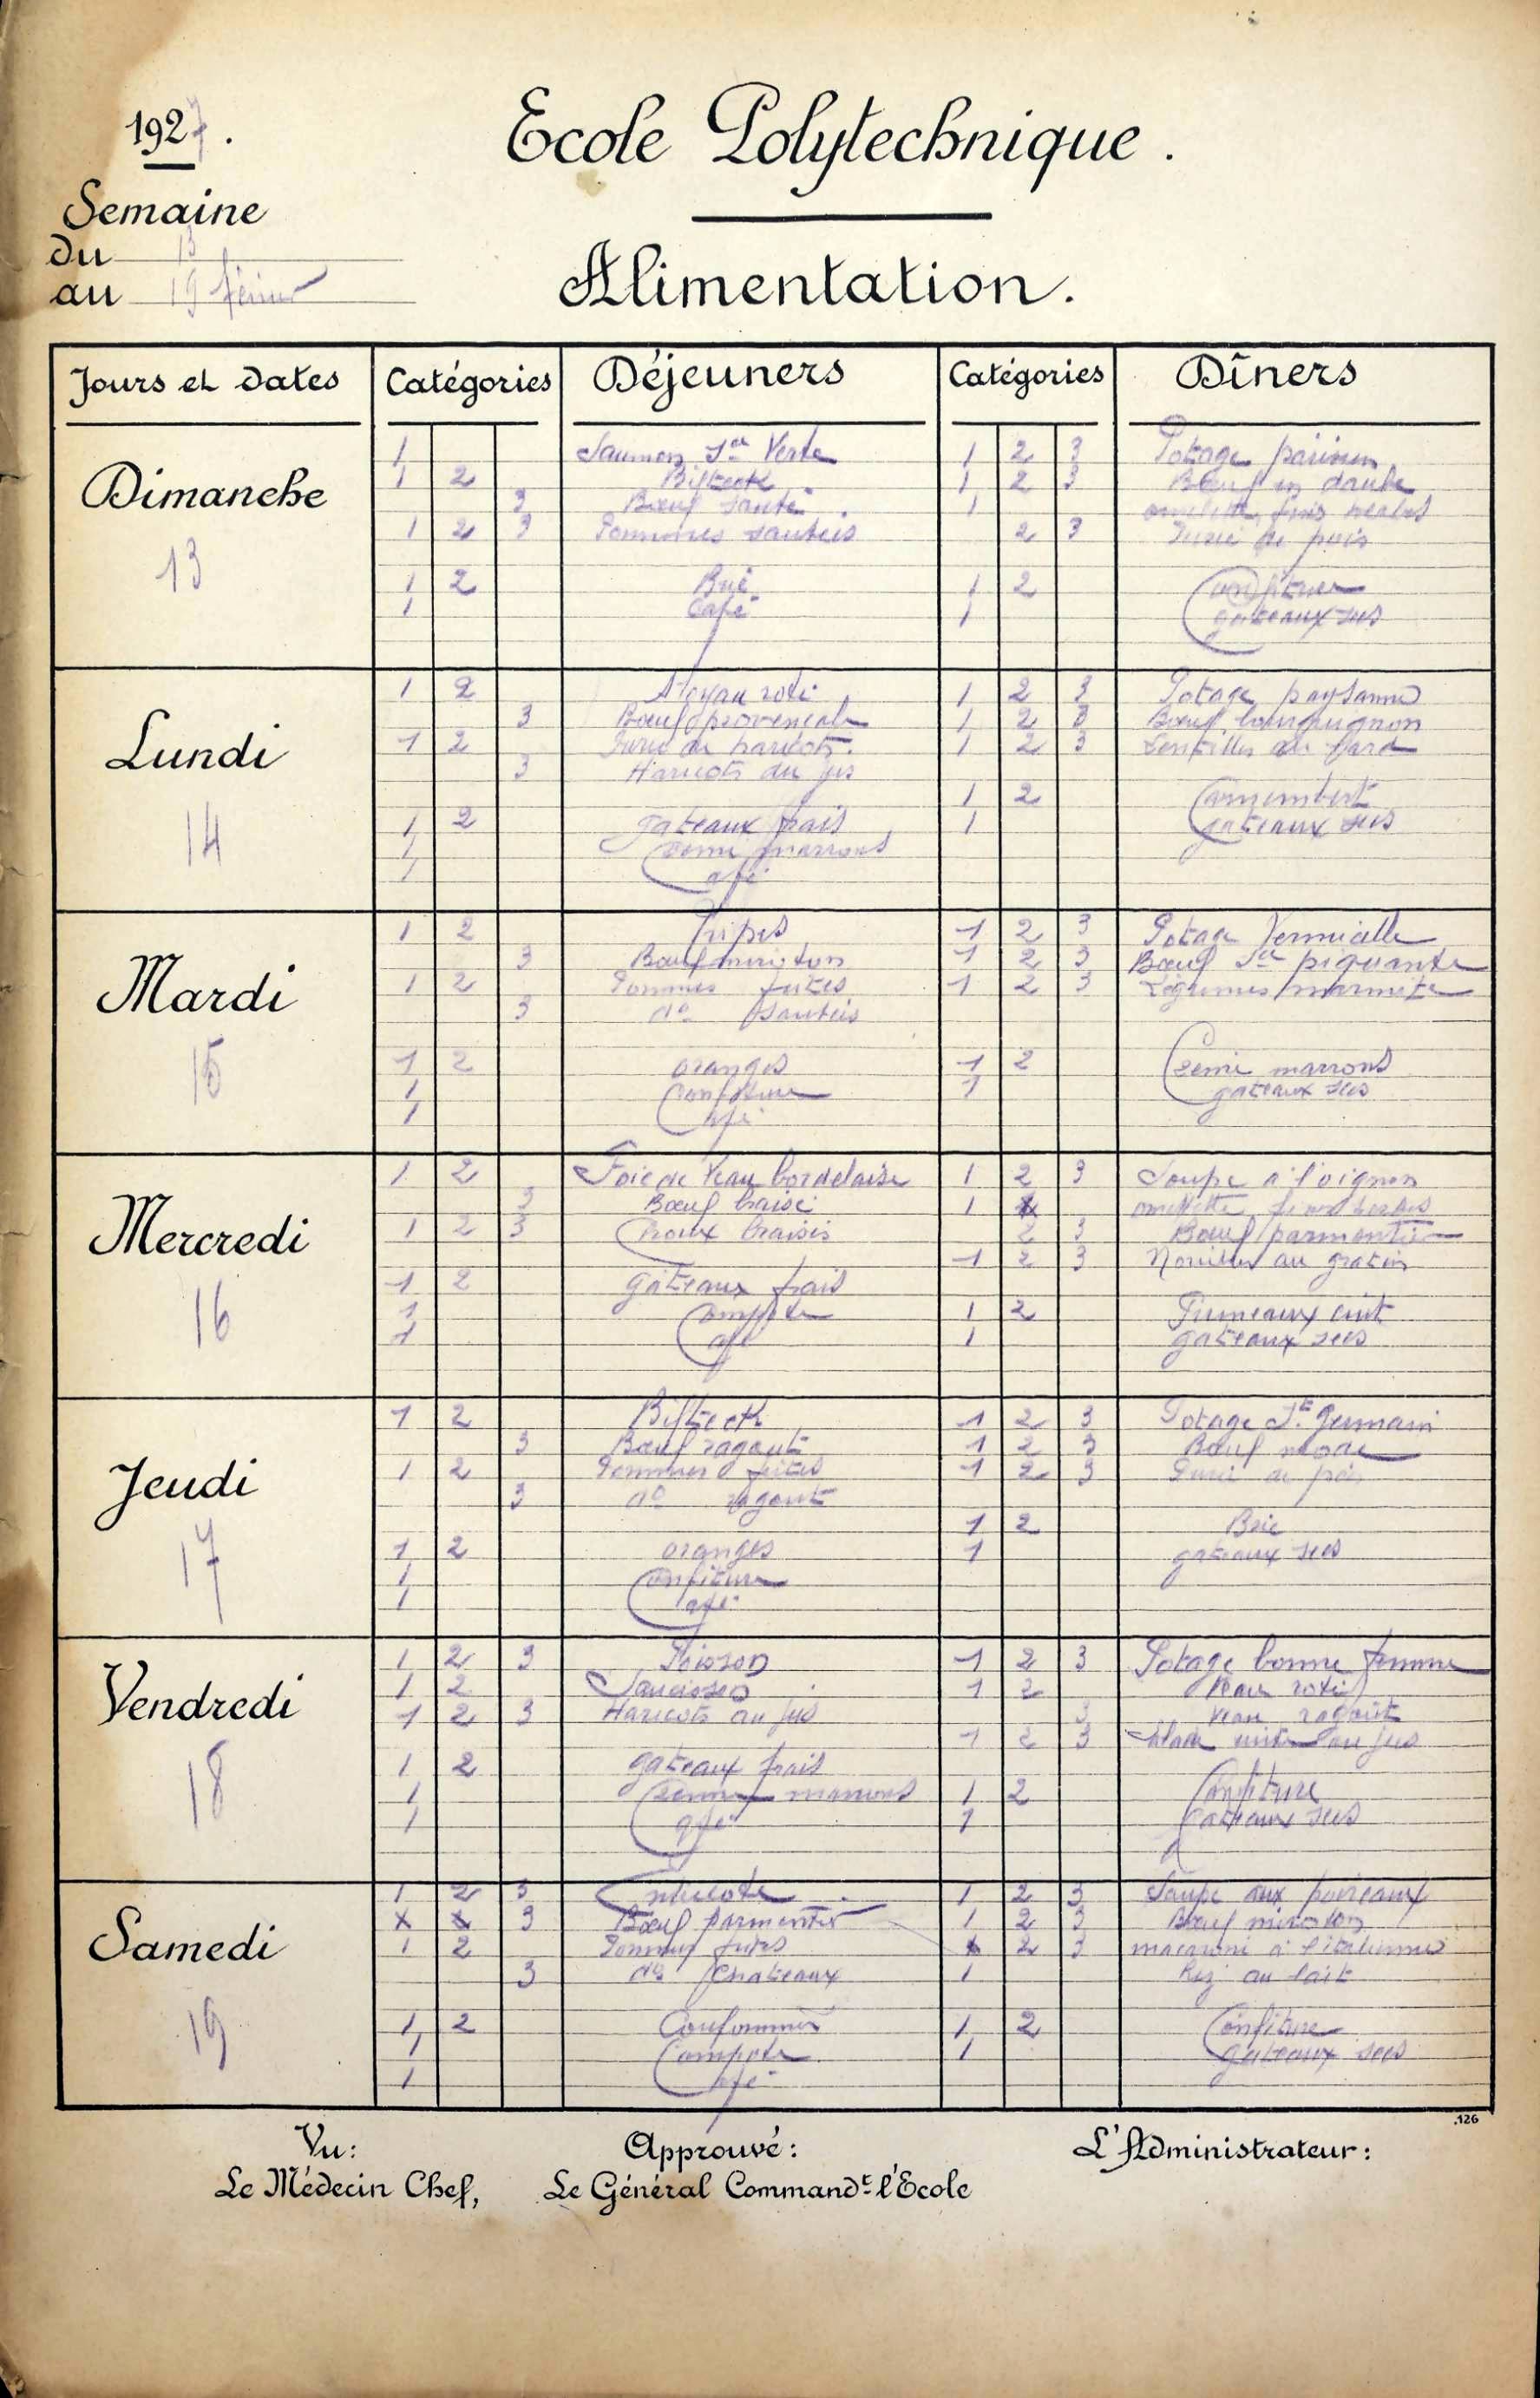 1927.
Ecole Polytechnique.
Semaine
du 13
au 19 février
Alimentation.
Jours et Dates Catégories Déjeuners Catégories Dîners
Dimanche
13
1 Saumon Sce Verte
1 2 Bifteck
3 Bœuf sauté
1 2 3 Pommes sautées
1 2 Brie
1 Café
1 2 3 Potage parisien
1 2 3 Bœuf en daube
1 omelette fines herbes
2 3 Purée de pois
1 2 Confiture
1 gateaux secs
Lundi
14
1 2 Aloyau roti
3 Bœuf provençale
1 2 Purée de haricots
3 Haricots du jus
1 2 gateaux frais
1 Creme marrons
1 Café
1 2 3 Potage paysanne
1 2 3 Bœuf bourguignon
1 2 3 Lentilles au lard
1 2 Camembert
1 gateaux secs
Mardi
15
1 2 Tripes
3 Bœuf miroton
1 2 Pommes frites
3 do sautées
1 2 oranges
1 Confiture
1 Café
1 2 3 Potage Vermicelle
1 2 3 Bœuf Sce piquante
1 2 3 Légumes marmite
1 2 Creme marrons
1 gateaux secs
Mercredi
16
1 2 Foie de Veau bordelaise
3 Bœuf braisé
1 2 3 Choux braisés
1 2 gateaux frais
1 Compote
1 Café
1 2 3 Soupe à l'oignon
1 omelette fines herbes
2 3 Bœuf parmentier
1 2 3 Nouilles au gratin
1 2 Pruneaux cuit
1 gateaux secs
Jeudi
17
1 2 Bifteck
3 Bœuf ragout
1 2 Pommes frites
3 do ragout
1 2 oranges
1 Confiture
1 Café
1 2 3 Potage St Germain
1 2 3 Bœuf mode
1 2 3 Purée de pois
1 2 Brie
1 gateaux secs
Vendredi
18
1 2 3 Poisson
1 2 Saucisson
1 2 3 Haricots au jus
1 2 gateaux frais
1 Creme marrons
1 Café
1 2 3 Potage bonne femme
1 2 Veau roti
3 Veau ragout
1 2 3 au jus
1 2 Confiture
1 Gateaux secs
Samedi
19
1 2 3 Entrecote
x x 3 Bœuf parmentier
1 2 Pommes frites
3 do Chateaux
1 2
1 Compote
1 Café
1 2 3 Soupe aux poireaux
1 2 3 Bœuf miroton
2 3 macaroni à l'italienne
1 Riz au lait
1 2 Confiture
1 gateaux secs
126
Vu: Approuvé: L'Administrateur:
Le Médecin Chef, Le Général Commandt l'Ecole